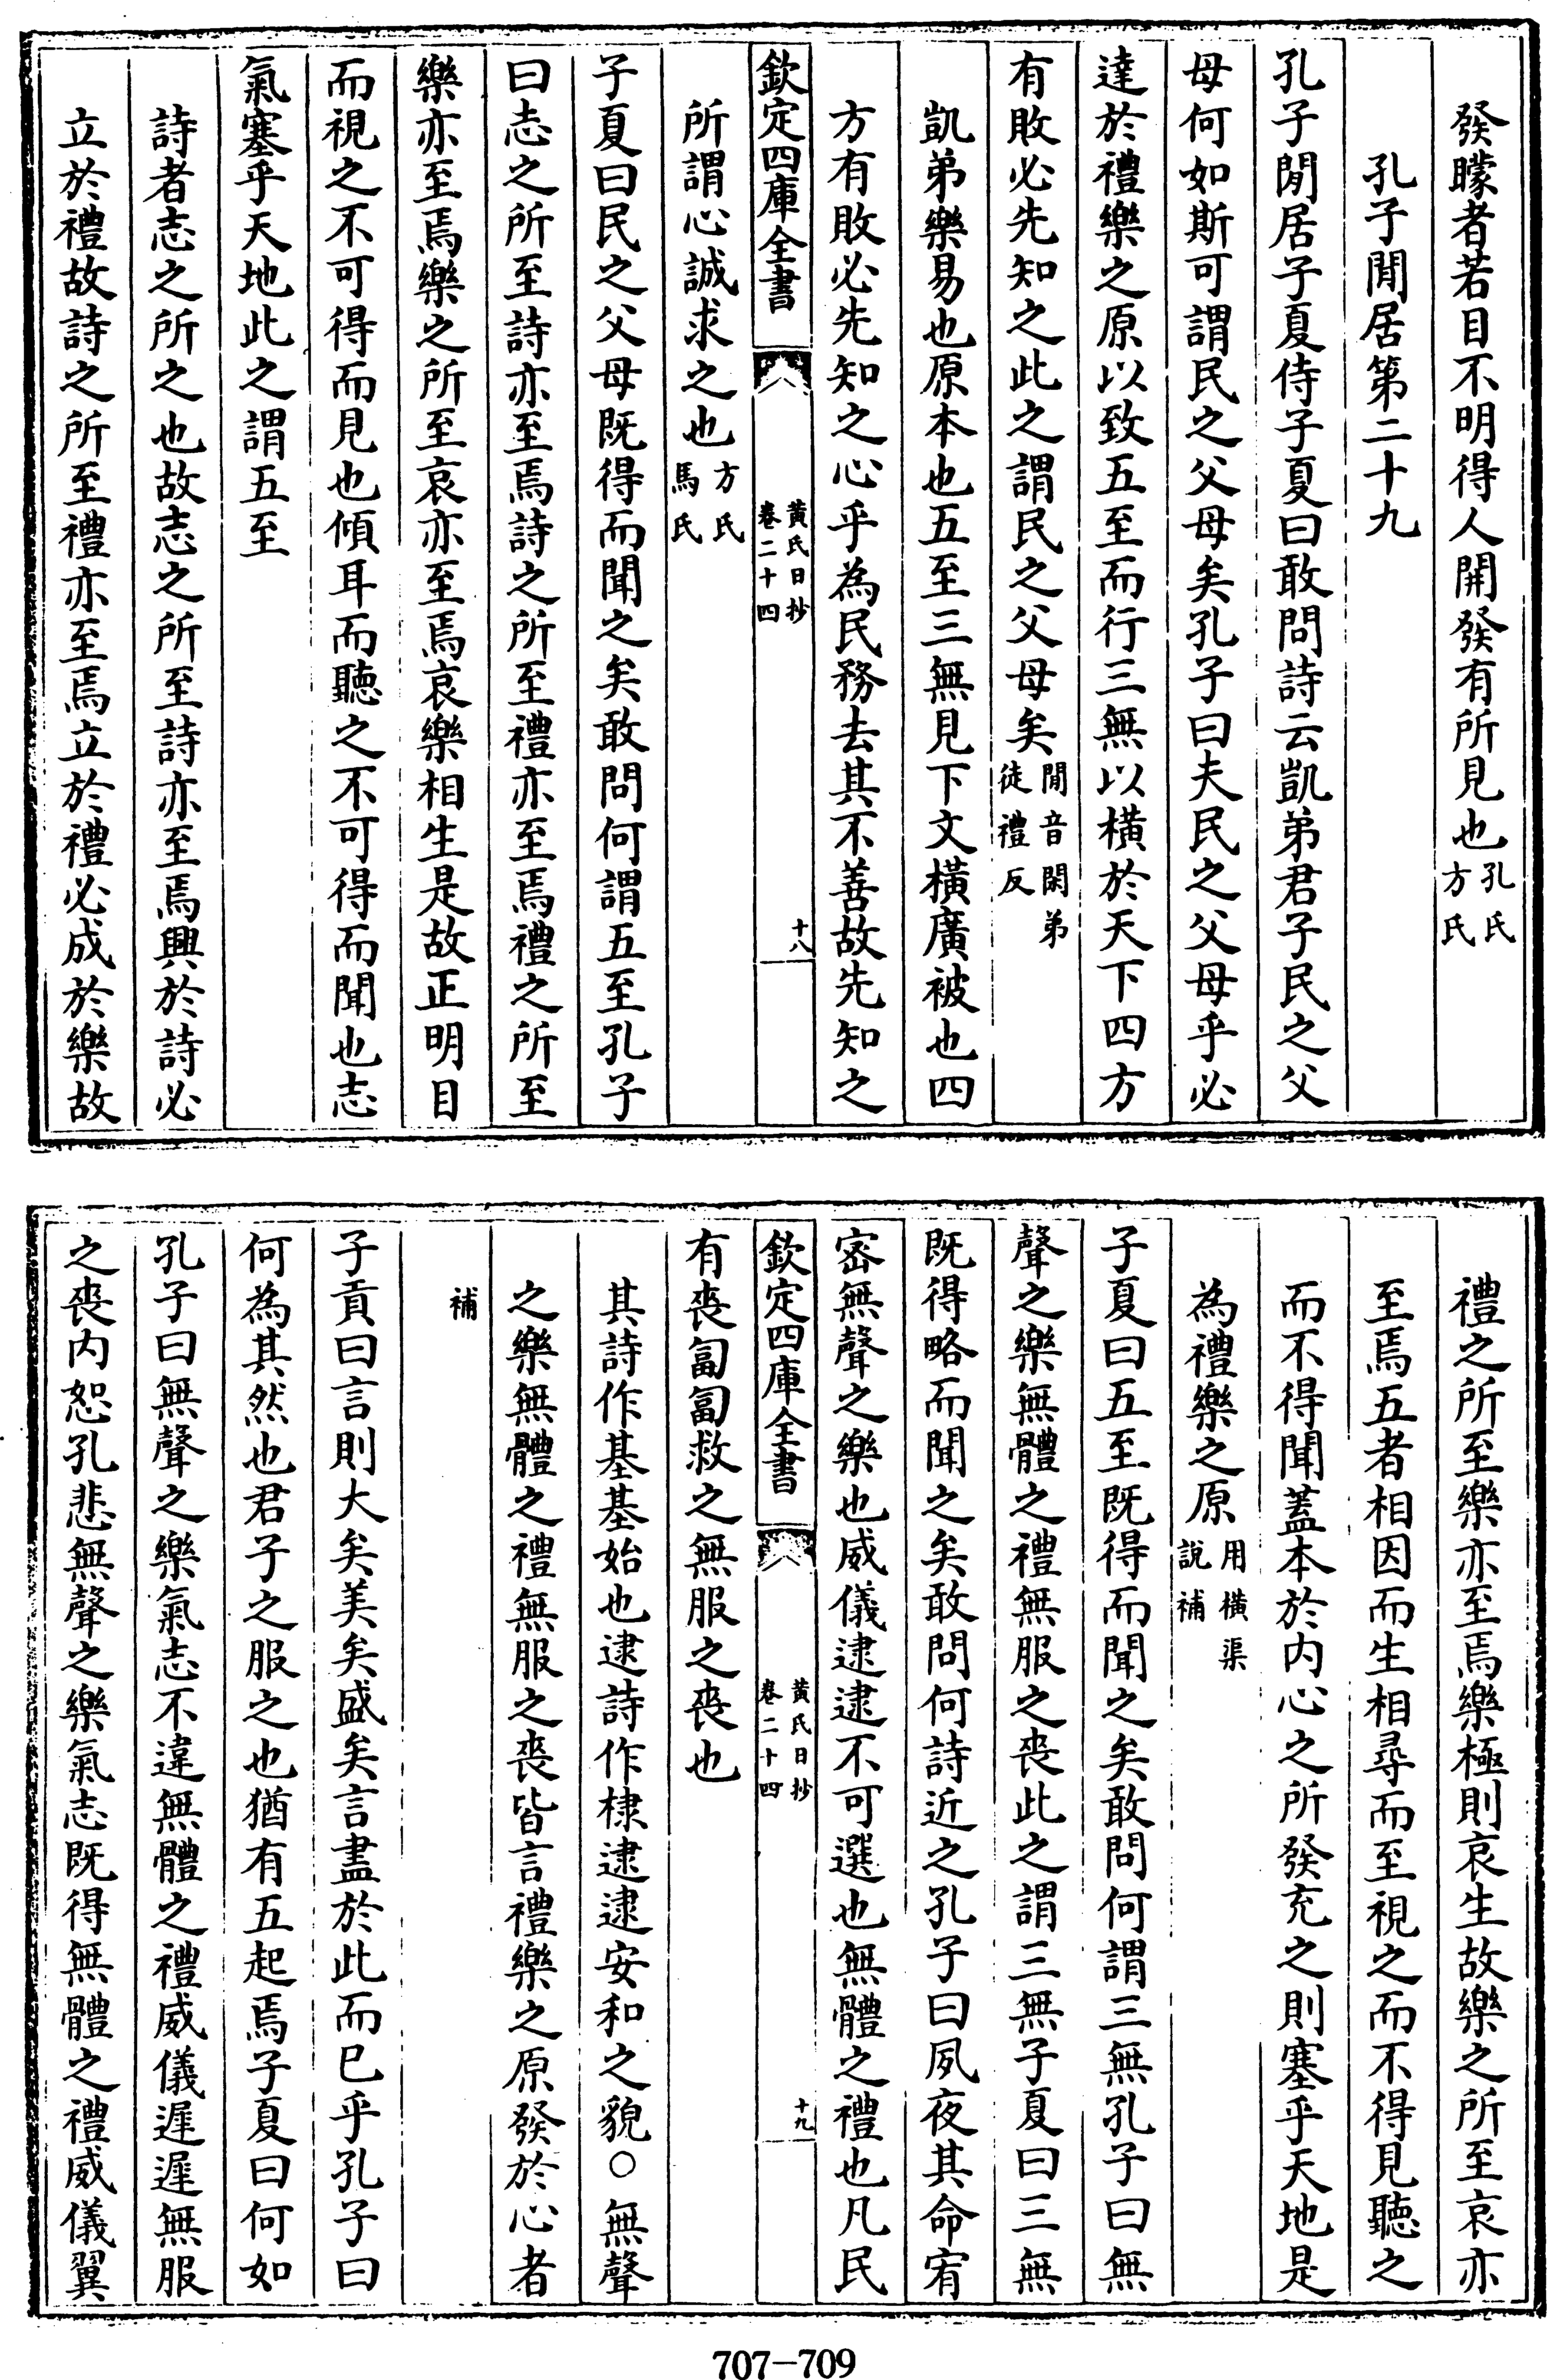 發矇者若目不明得人開發有所見也孔氏方氏
孔子閒居第二十九
孔子閒居子夏侍子夏曰敢問詩云凱弟君子民之父
母何如斯可謂民之父母矣孔子曰夫民之父母乎必
達於禮樂之原以致五至而行三無以橫於天下四方
有敗必先知之此之謂民之父母矣閒音閑弟徒禮反
凱弟樂易也原本也五至三無見下文橫廣被也四
方有敗必先知之心乎為民務去其不善故先知之
欽定四庫全書 黃氏日抄卷二十四 十八
所謂心誠求之也方氏馬氏
子夏曰民之父母既得而聞之矣敢問何謂五至孔子
曰志之所至詩亦至焉詩之所至禮亦至焉禮之所至
樂亦至焉樂之所至哀亦至焉哀樂相生是故正明目
而視之不可得而見也傾耳而聽之不可得而聞也志
氣塞乎天地此之謂五至
詩者志之所之也故志之所至詩亦至焉興於詩必
立於禮故詩之所至禮亦至焉立於禮必成於樂故
禮之所至樂亦至焉樂極則哀生故樂之所至哀亦
至焉五者相因而生相尋而至視之而不得見聽之
而不得聞蓋本於内心之所發充之則塞乎天地是
為禮樂之原用橫渠說補
子夏曰五至既得而聞之矣敢問何謂三無孔子曰無
聲之樂無體之禮無服之喪此之謂三無子夏曰三無
既得略而聞之矣敢問何詩近之孔子曰夙夜其命宥
密無聲之樂也威儀逮逮不可選也無體之禮也凡民
欽定四庫全書 黃氏日抄卷二十四 十九
有喪匍匐救之無服之喪也
其詩作基基始也逮詩作棣逮逮安和之貌○無聲
之樂無體之禮無服之喪皆言禮樂之原發於心者
補
子貢曰言則大矣美矣盛矣言盡於此而已乎孔子曰
何為其然也君子之服之也猶有五起焉子夏曰何如
孔子曰無聲之樂氣志不違無體之禮威儀遲遲無服
之喪内恕孔悲無聲之樂氣志既得無體之禮威儀翼
707—709